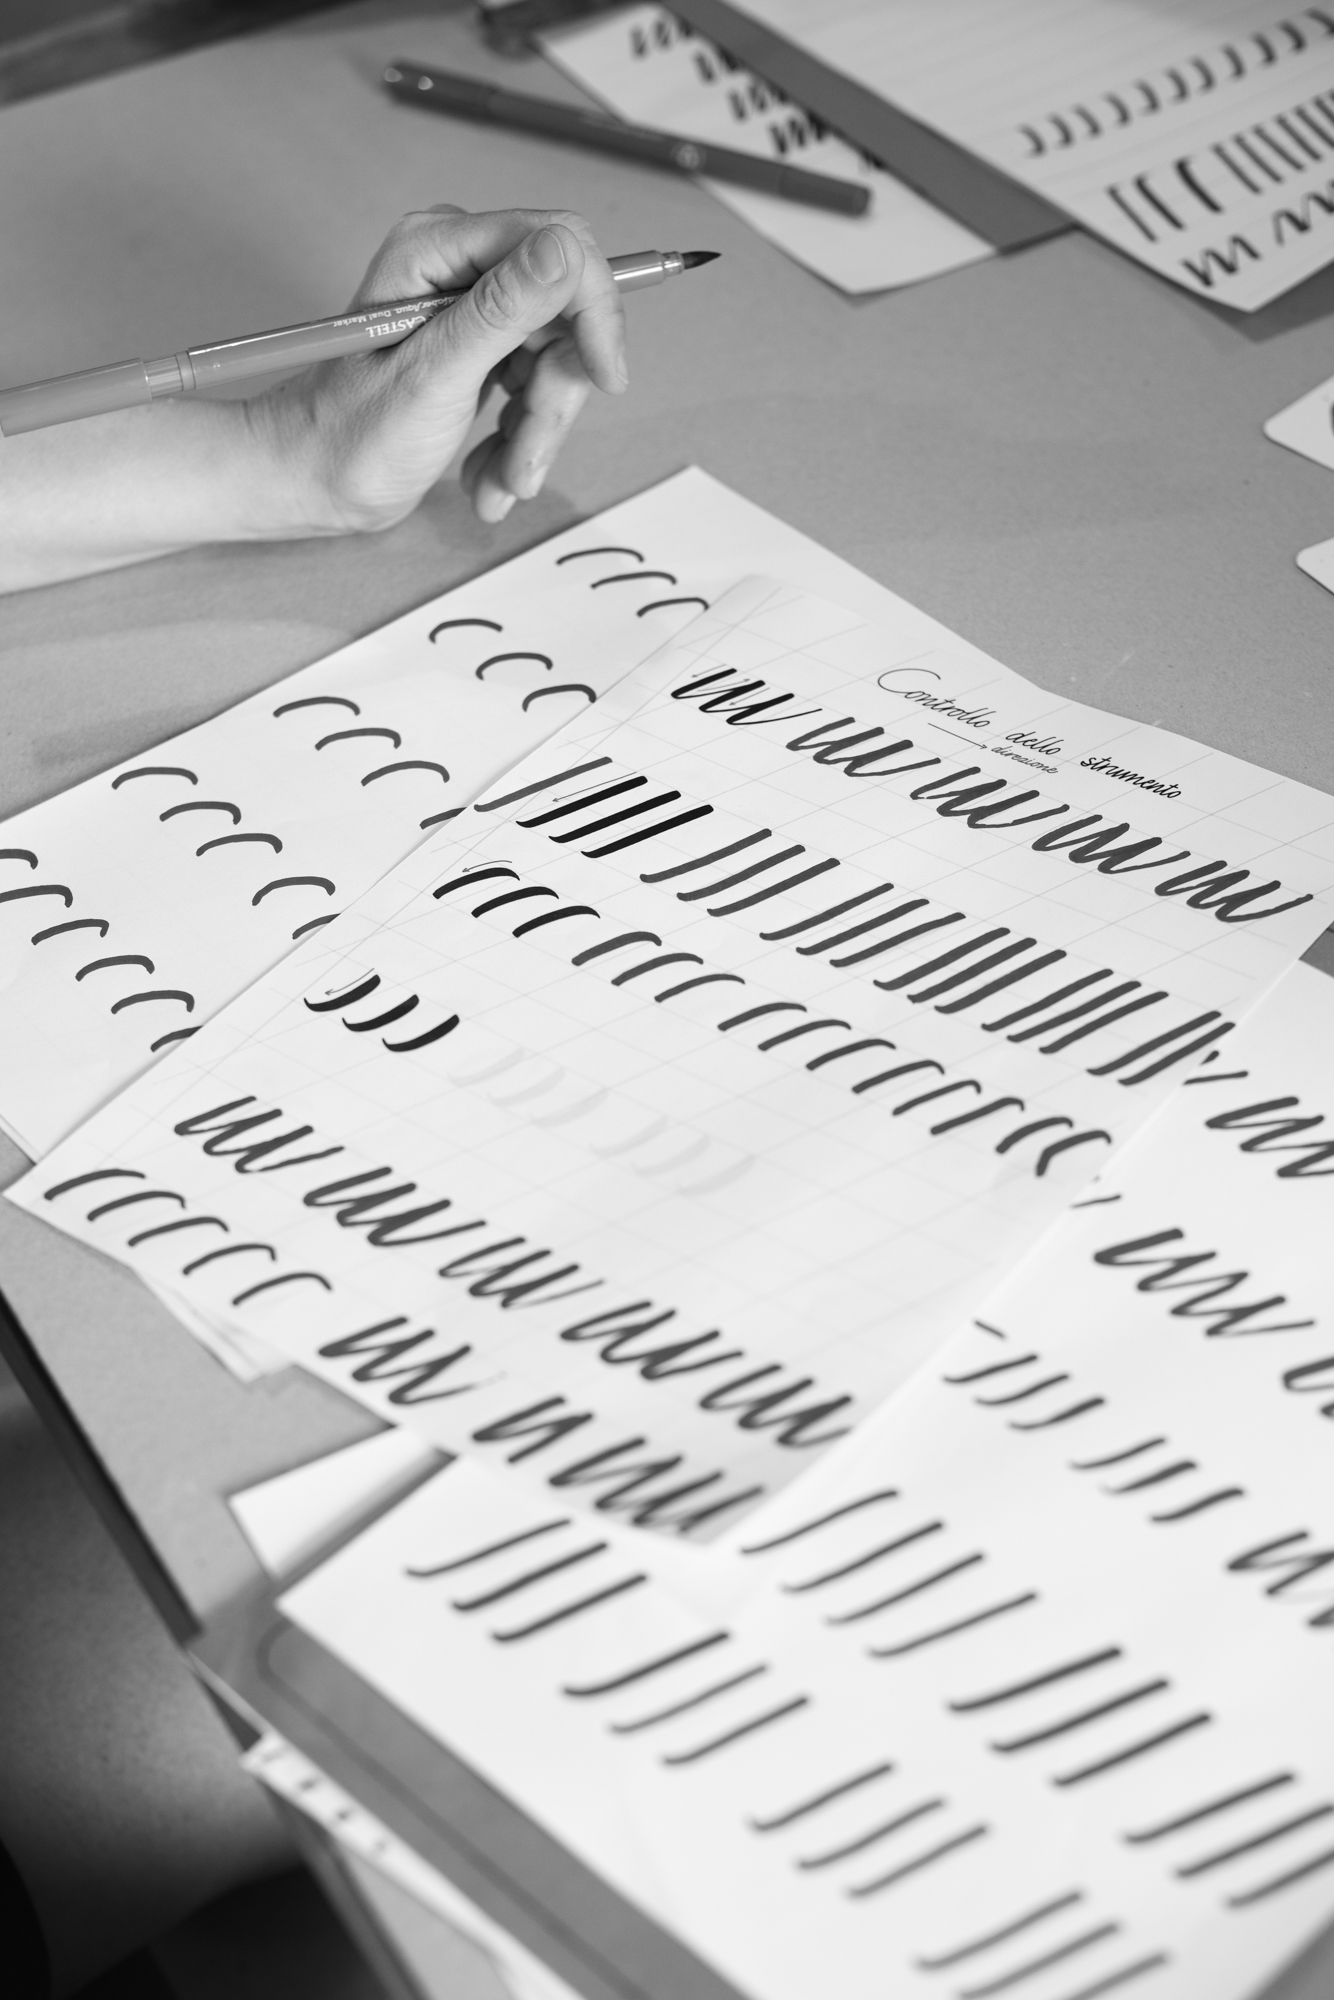 Controllo dello strumento
direzione
CASTELL
Dual Marker